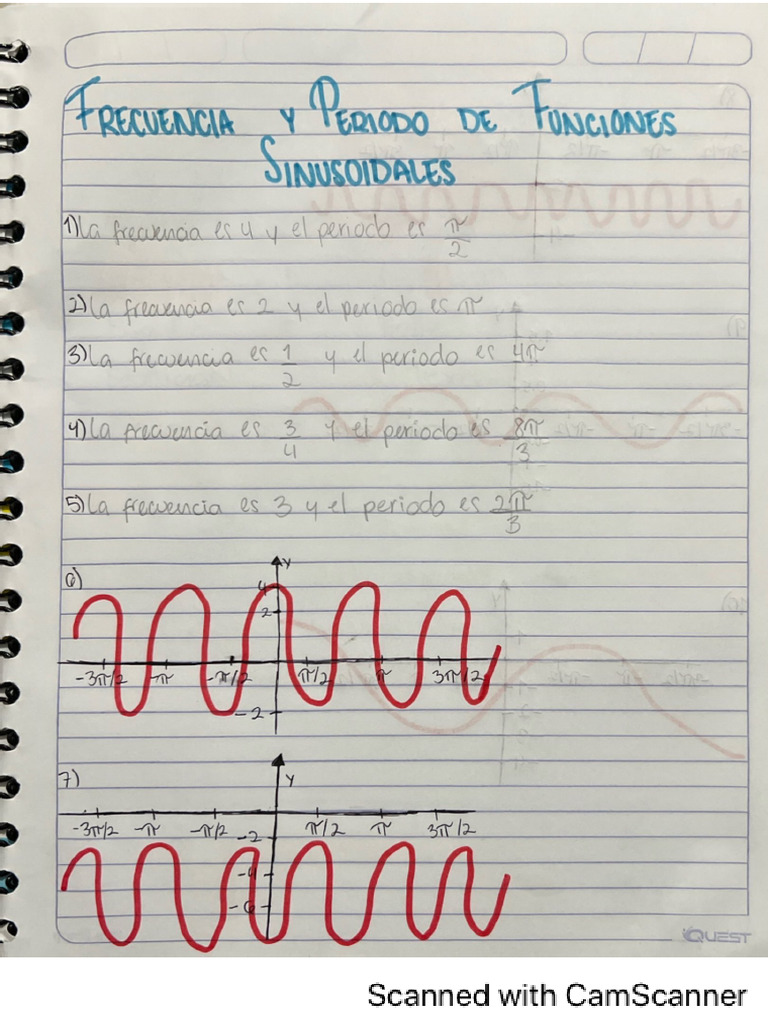 FRECUENCIA Y PERIODO DE FUNCIONES
SINUSOIDALES
1) La frecuencia es 4 y el periodo es π/2
2) La frecuencia es 2 y el periodo es π
3) La frecuencia es 1/2 y el periodo es 4π
4) La frecuencia es 3/4 y el periodo es 8π/3
5) La frecuencia es 3 y el periodo es 2π/3
6)
y
4
2
-3π/2 -π -π/2 π/2 π 3π/2
-2
7)
y
-3π/2 -π -π/2 π/2 π 3π/2
-2
-4
-6
QUEST
Scanned with CamScanner